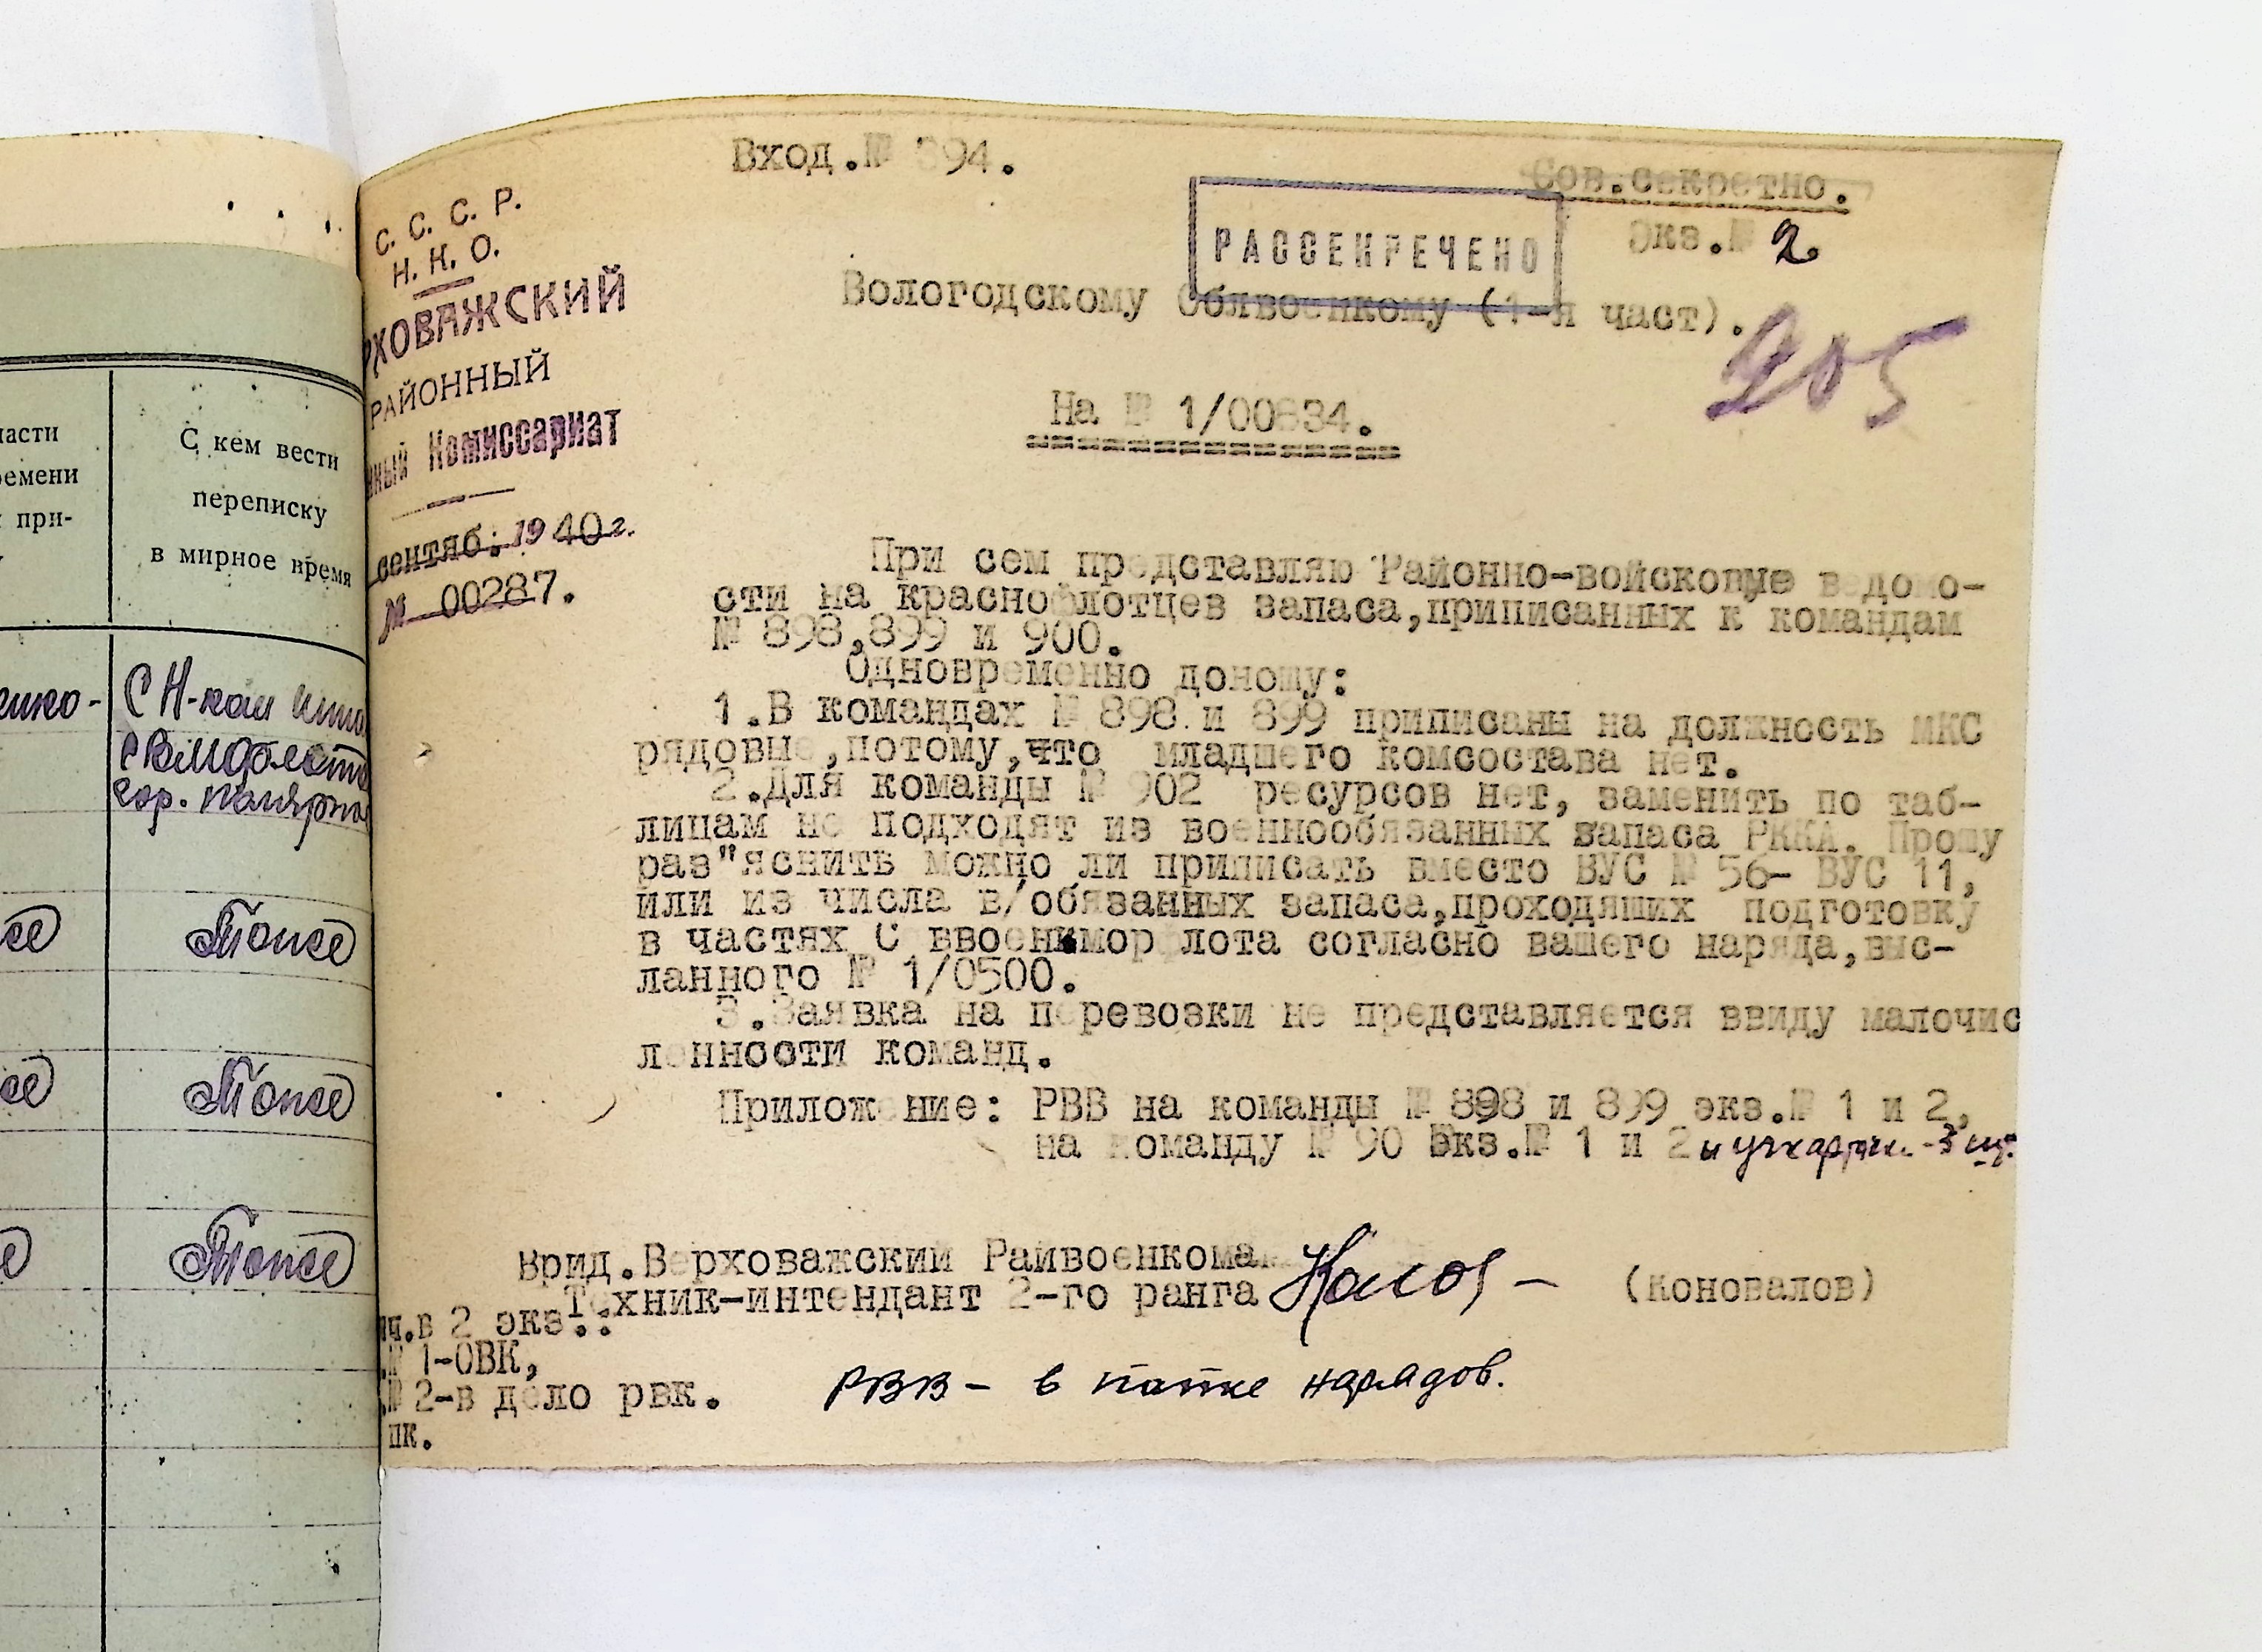 Вход.№ 894.
Сов.секретно.
Экз.№ 2.
РАССЕКРЕЧЕНО
Вологодскому Облвоенкому (1-я част).
205
С. С. С. Р.
Н. К. О.
РХОВАЖСКИЙ
РАЙОННЫЙ
ный Комиссариат
сентяб: 1940г.
№ 00287.
На № 1/00634.
При сем представляю Районно-войсковые ведомо-
сти на краснофлотцев запаса,приписанных к командам
№ 898,899 и 900.
Одновременно доношу:
1.В командах № 898 и 899 приписаны на должность МКС
рядовые,потому,что младшего комсостава нет.
2.Для команды № 902 ресурсов нет, заменить по таб-
лицам не подходят из военнообязанных запаса РККА. Прошу
раз"яснить можно ли приписать вместо ВУС № 56- ВУС 11,
или из числа в/обязанных запаса,проходящих подготовку
в частях С ввоенмор лота согласно вашего наряда,выс-
ланного № 1/0500.
3.Заявка на перевозки не представляется ввиду малочис
ленности команд.
Приложение: РВВ на команды № 898 и 899 экз.№ 1 и 2,
на команду № 90 Экз.№ 1 и 2 и учкарточк. - 3 шт.
Врид.Верховажский Райвоенкома
Техник-интендант 2-го ранга (Коновалов)
ч.в 2 экз.:
№ 1-ОВК,
№ 2-в дело рвк.
пк.
РВВ - в папке нарядов.
части
ремени
при-
С кем вести
переписку
в мирное время
С Н-ком
Тоже
Тоже
Тоже